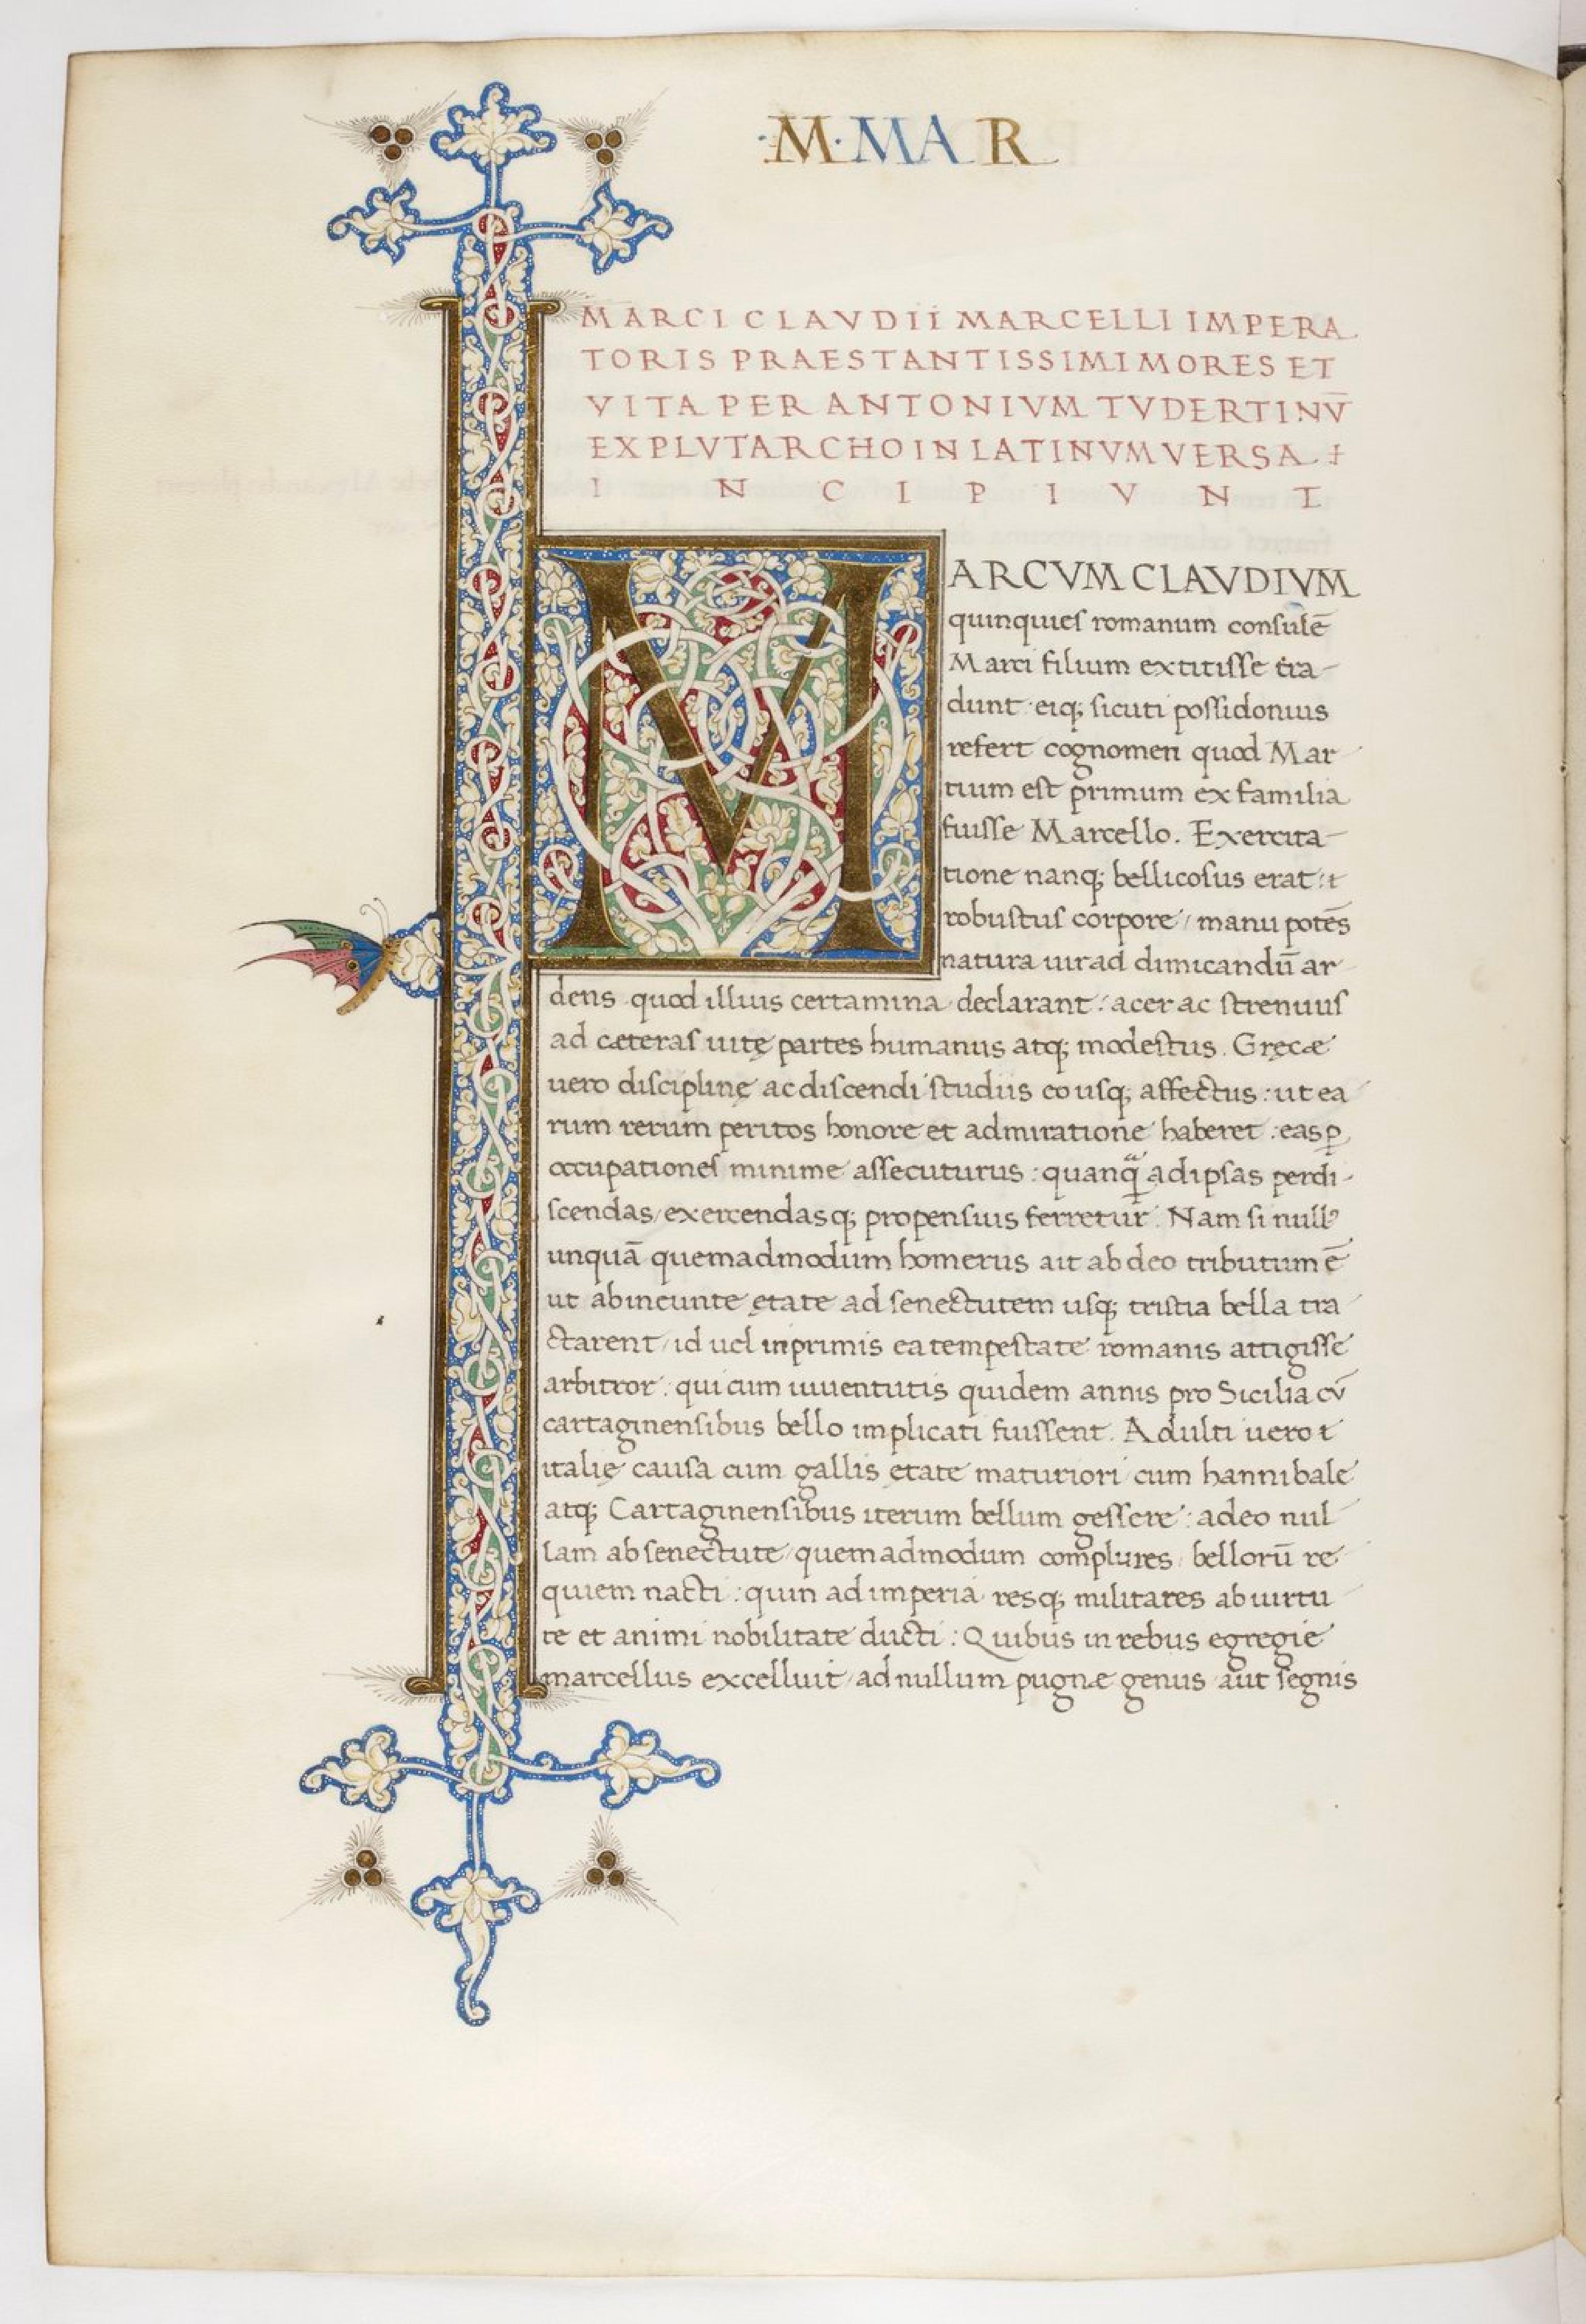 ·M·MAR
MARCI CLAVDII MARCELLI IMPERA
TORIS PRAESTANTISSIMI MORES ET
VITA PER ANTONIVM TVDERTINV̄
EX PLVTARCHO IN LATINVM VERSA
INCIPIVNT
MARCVM CLAVDIVM
quinquies romanum consulē
Marci filium extitisse tra-
dunt eiq; sicuti possidonius
refert cognomen quod Mar
tium est primum ex familia
fuisse Marcello. Exercita-
tione nanq; bellicosus erat: &
robustus corpore / manu potēs
natura uir ad dimicandū ar
dens quod illius certamina declarant: acer ac strenuus
ad cæteras uitę partes humanus atq; modestus. Gręcæ
uero disciplinę ac discendi studiis eo usq; affectus: ut ea
rum rerum peritos honore et admiratione haberet: eas ꝑ
occupationes minime assecuturus: quanq̃ ad ipsas perdi-
scendas / exercendasq; propensius ferretur. Nam si nullꝰ
unquā quemadmodum homerus ait ab deo tributum ē
ut ab ineunte ętate ad senectutem usq; tristia bella tra
ctarent / id uel inprimis ea tempestate romanis attigisse
arbitror: qui cum iuuentutis quidem annis pro Sicilia cū
cartaginensibus bello implicati fuissent. Adulti uero &
italię causa cum gallis ętate maturiori cum hannibale
atq; Cartaginensibus iterum bellum gessere: adeo nul
lam ab senectute / quemadmodum complures / bellorū re
quiem nacti: quin ad imperia resq; militares ab uirtu
te et animi nobilitate ducti: Quibus in rebus egregie
marcellus excelluit / ad nullum pugnæ genus aut segnis